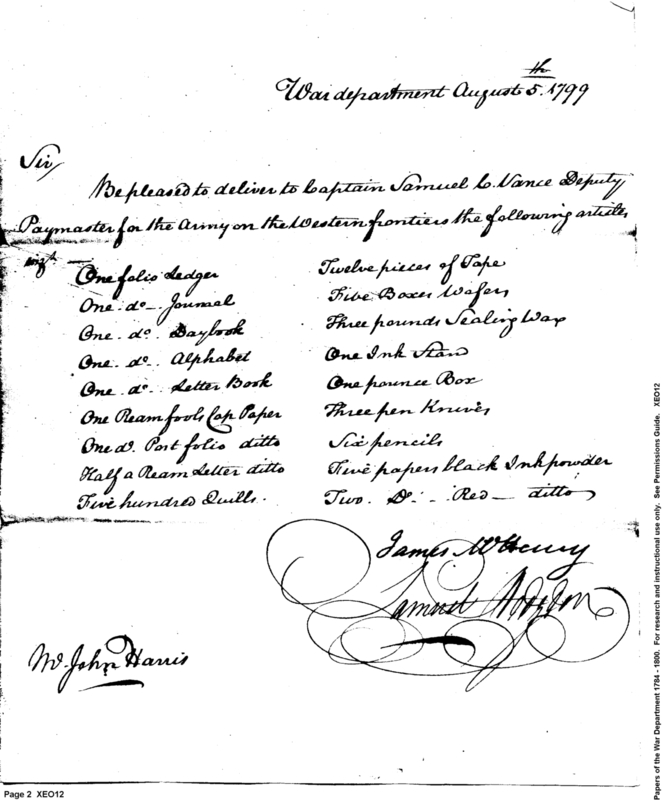 War department August 5.th 1799
Sir/
Be pleased to deliver to Captain Samuel C. Vance Deputy
Paymaster for the Army on the Western frontiers the following articles
vizt —
One folio Ledger
One. do — Journal
One. do. Daybook
One. do. Alphabet
One. do. Letter Book
One Ream fools Cap Paper
One do. Port folio ditto
Half a Ream Letter ditto
Five hundred Quills.
Twelve pieces of Tape
Five Boxes Wafers
Three pounds Sealing Wax
One Ink Stan
One pounce Box
Three pen Knives
Six pencils
Five papers black Inkpowder
Two. Do. — Red — ditto
James McHenry
Samuel Hodgdon
Mr. John Harris
Page 2 XEO12
Papers of the War Department 1784 - 1800. For research and instructional use only. See Permissions Guide. XEO12